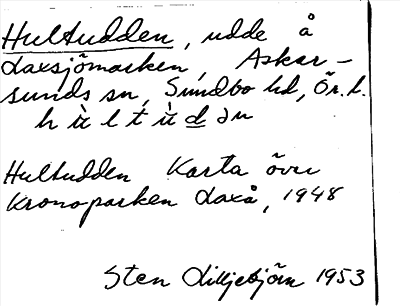 Hultudden, udde å
Laxsjömarken, Asker-
sunds sn, Sundbo hd, Ör. l.
hùltùdən
Hultudden Karta över
Kronoparken Laxå, 1948
Sten Lilljebjörn 1953